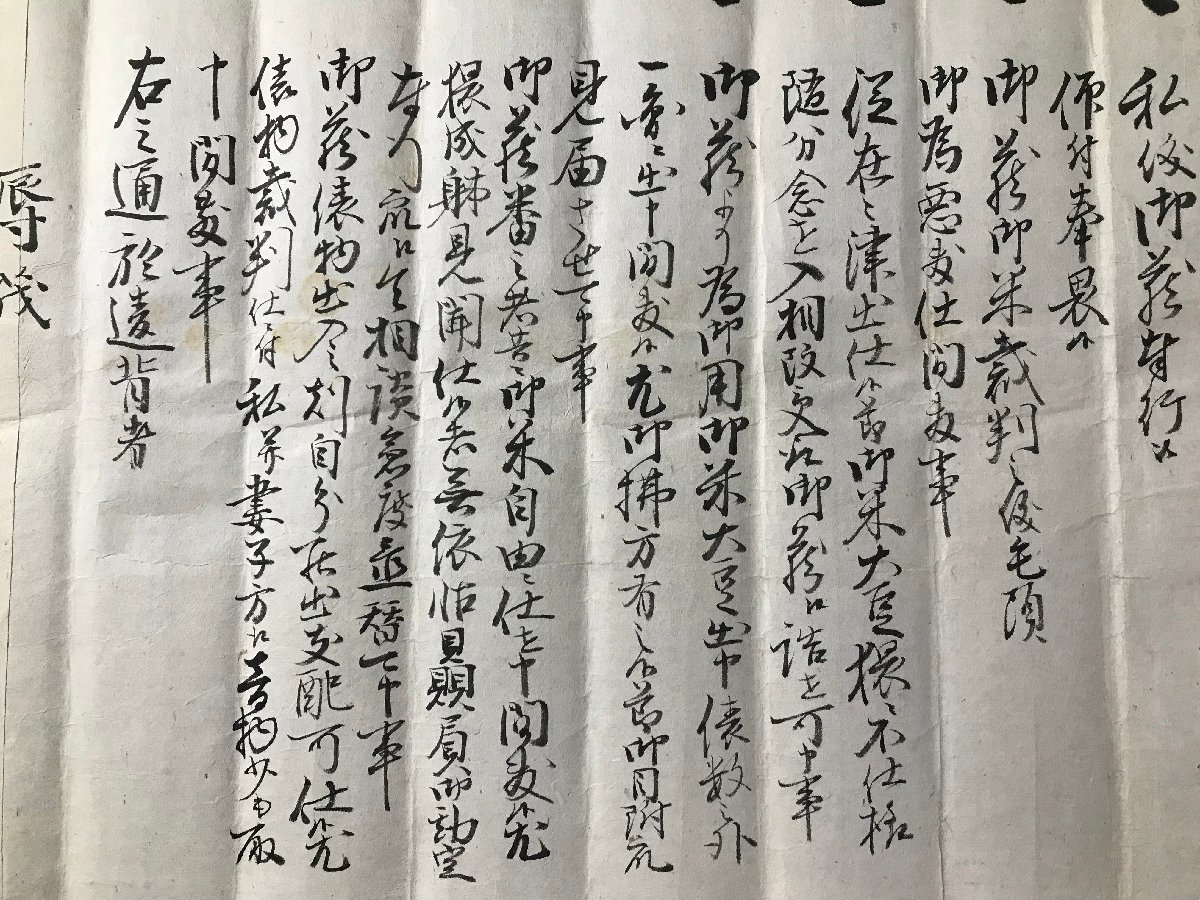 私儀御蔵奉行ニ
仰付奉畏候
御蔵御米裁判之儀毛頭
御為悪敷仕間敷事
従在々津出仕候節御米大豆猥ニ不仕様
随分念を入相改え御蔵江詰させ可申事
御蔵より為御用御米大豆出申俵数之外
一切出申間敷候尤御拂方有之候節御目附衆
見届させ可申事
御蔵番之者共御米自由ニ仕せ申間敷候尤
猥成躰見聞仕候者無依怙贔屓御勘定
奉行衆江令相談急度并替可申事
御蔵俵物出入之刻自分罷出支配可仕候尤
俵物裁判仕ニ付私并妻子方江音物少も取
申間敷事
右之通於違背者